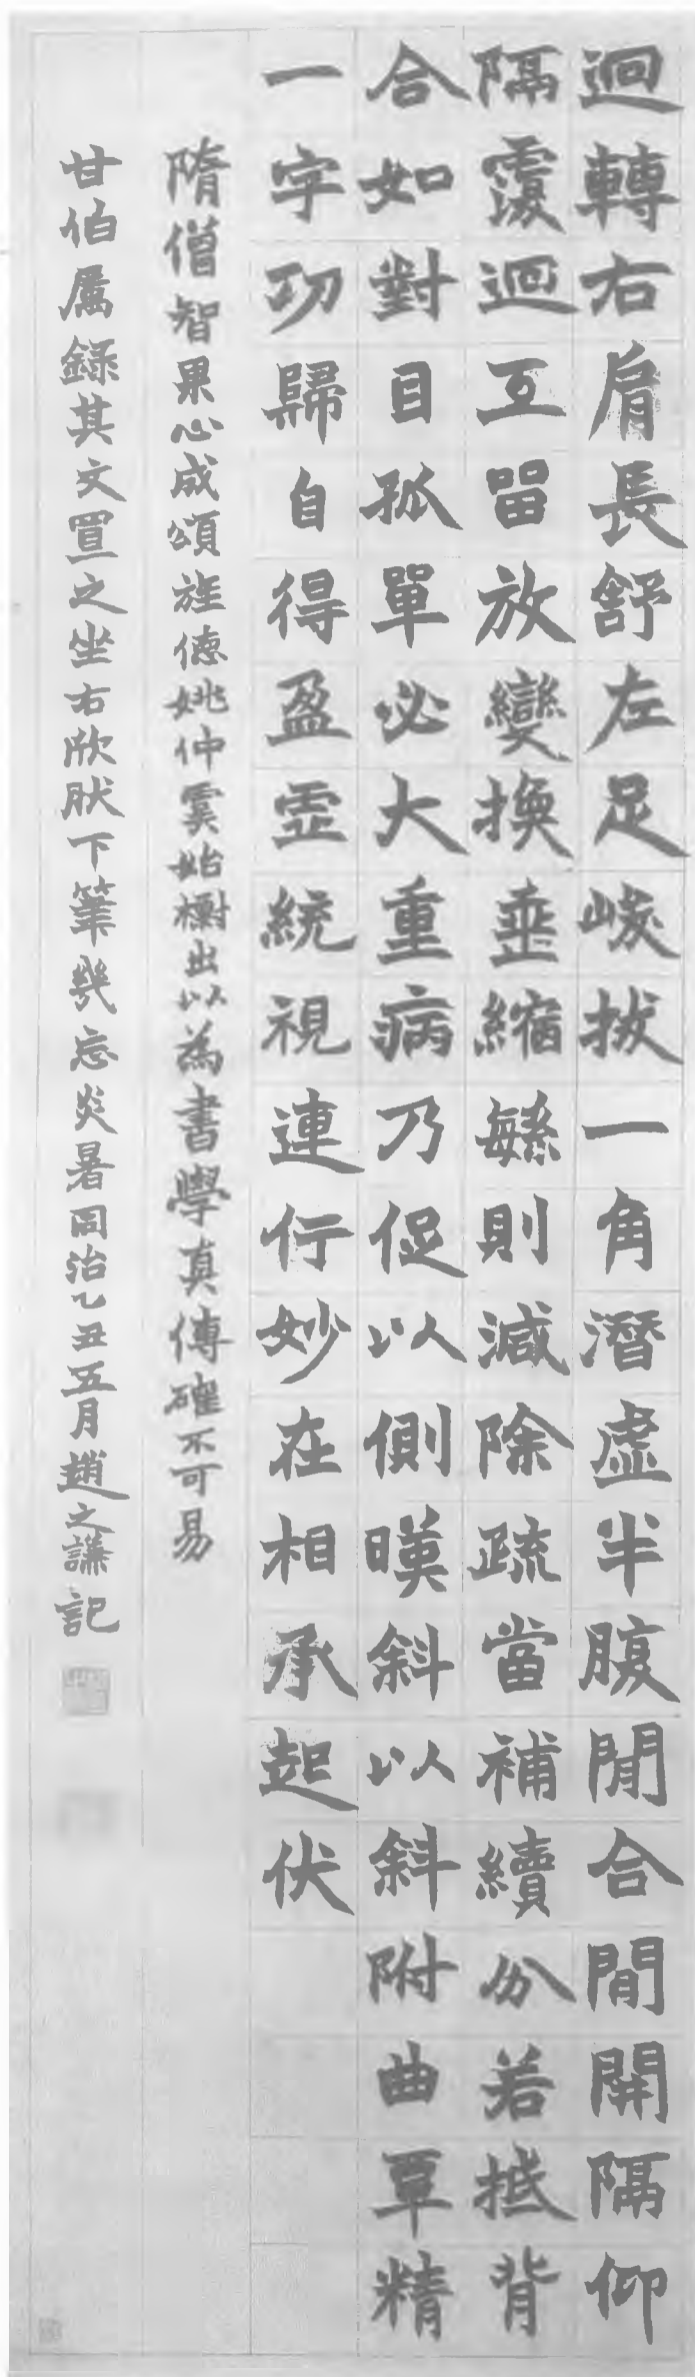 迴轉右肩長舒左足峻拔一角潛虛半腹閒合閒開隔仰
隔覆迴互留放變換垂縮繁則減除疏當補續分若抵背
合如對目孤單必大重病乃促以側映斜以斜附曲覃精
一字功歸自得盈虛統視連行妙在相承起伏
隋僧智果心成頌旌德姚仲虞始檢出以為書學真傳確不可易
甘伯屬錄其文置之坐右欣肰下筆幾忘炎暑同治乙丑五月趙之謙記